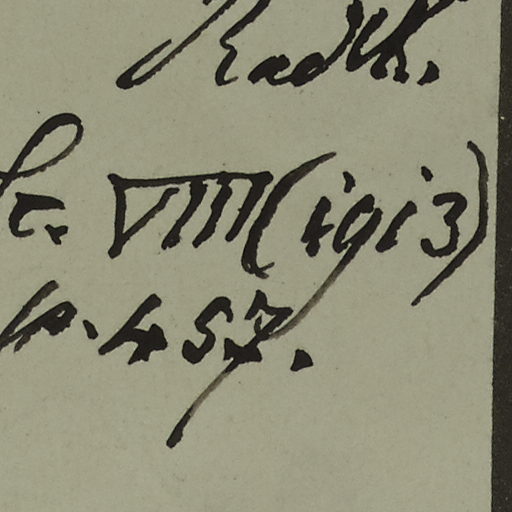 Radlk.
VIII (1913)
p. 457.